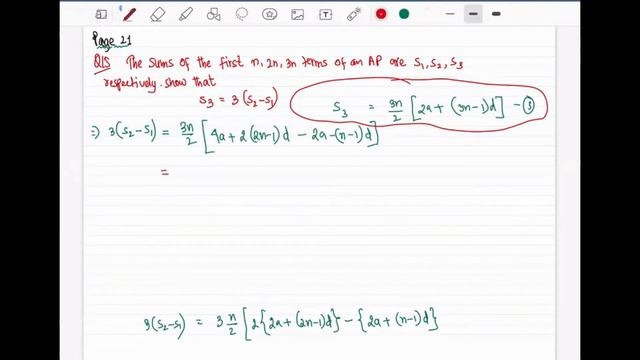 Page 21
Q15 The sums of the first n, 2n, 3n terms of an AP are S₁, S₂, S₃
respectively. show that
S₃ = 3(S₂-S₁)
S₃ = 3n/2 [2a + (3n-1)d] - ③
⇒ 3(S₂-S₁) = 3n/2 [4a + 2(2n-1)d - 2a - (n-1)d]
=
3(S₂-S₁) = 3 n/2 [2{2a + (2n-1)d} - {2a + (n-1)d}